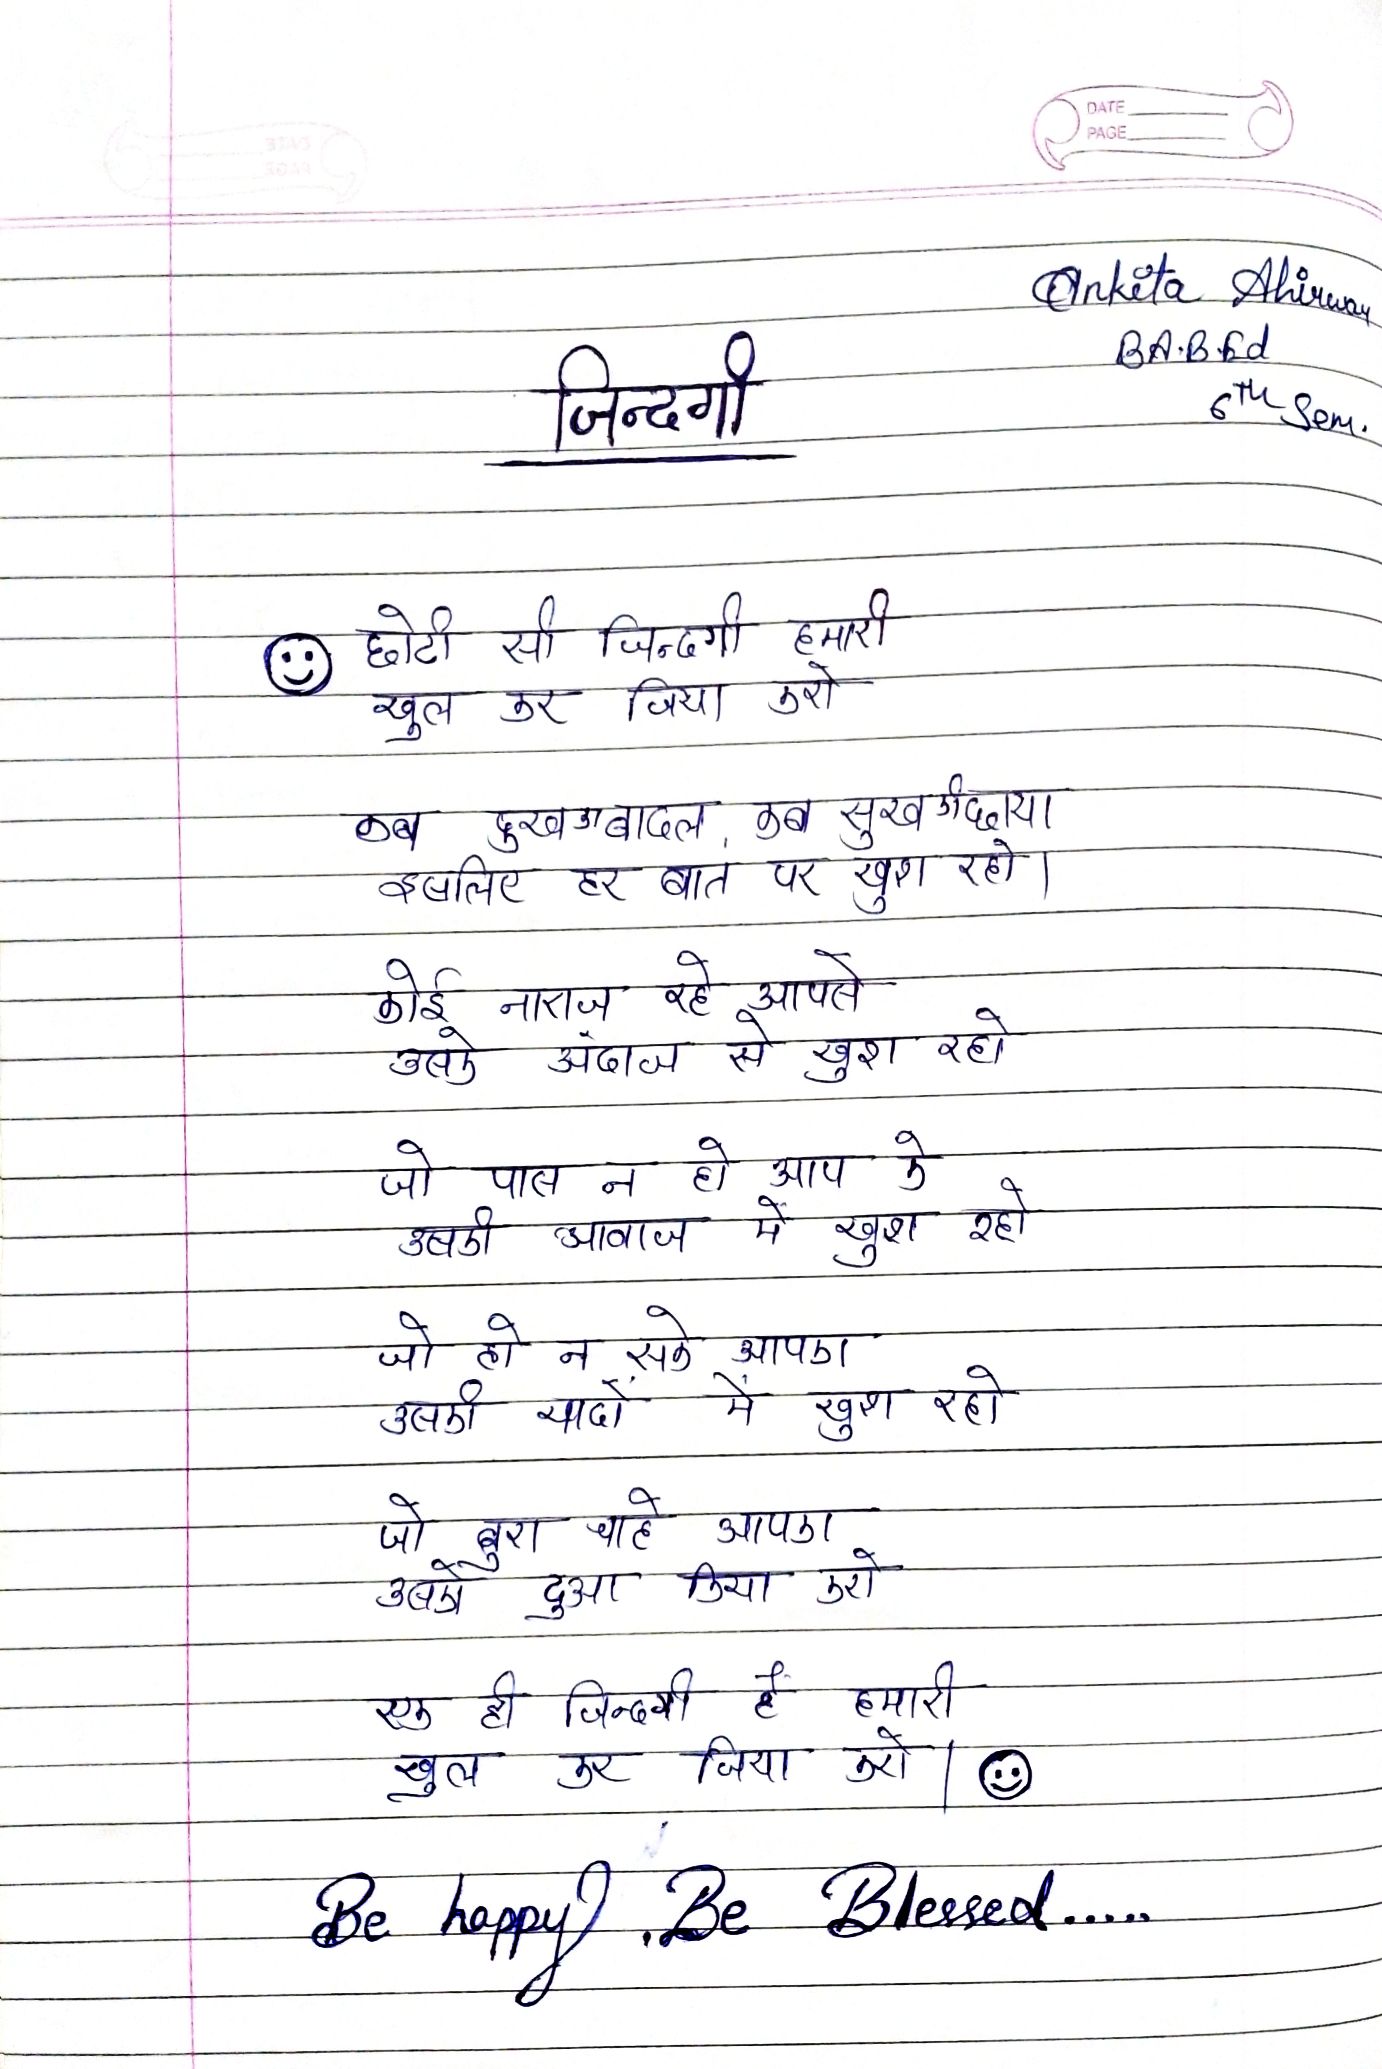 DATE
PAGE
Ankita Ahirwar
B.A.B.Ed
6TH Sem.
जिन्दगी
छोटी सी जिन्दगी हमारी
खुल कर जिया करो
कब दुख का बादल, कब सुख की छाया
इसलिए हर बात पर खुश रहो।
कोई नाराज रहे आपसे
उसके अंदाज से खुश रहो
जो पास न हो आप के
उसकी आवाज में खुश रहो
जो हो न सके आपका
उसकी यादों में खुश रहो
जो बुरा चाहे आपका
उसको दुआ किया करो
एक ही जिन्दगी हैं हमारी
खुल कर जिया करो।
Be happy. Be Blessed.....